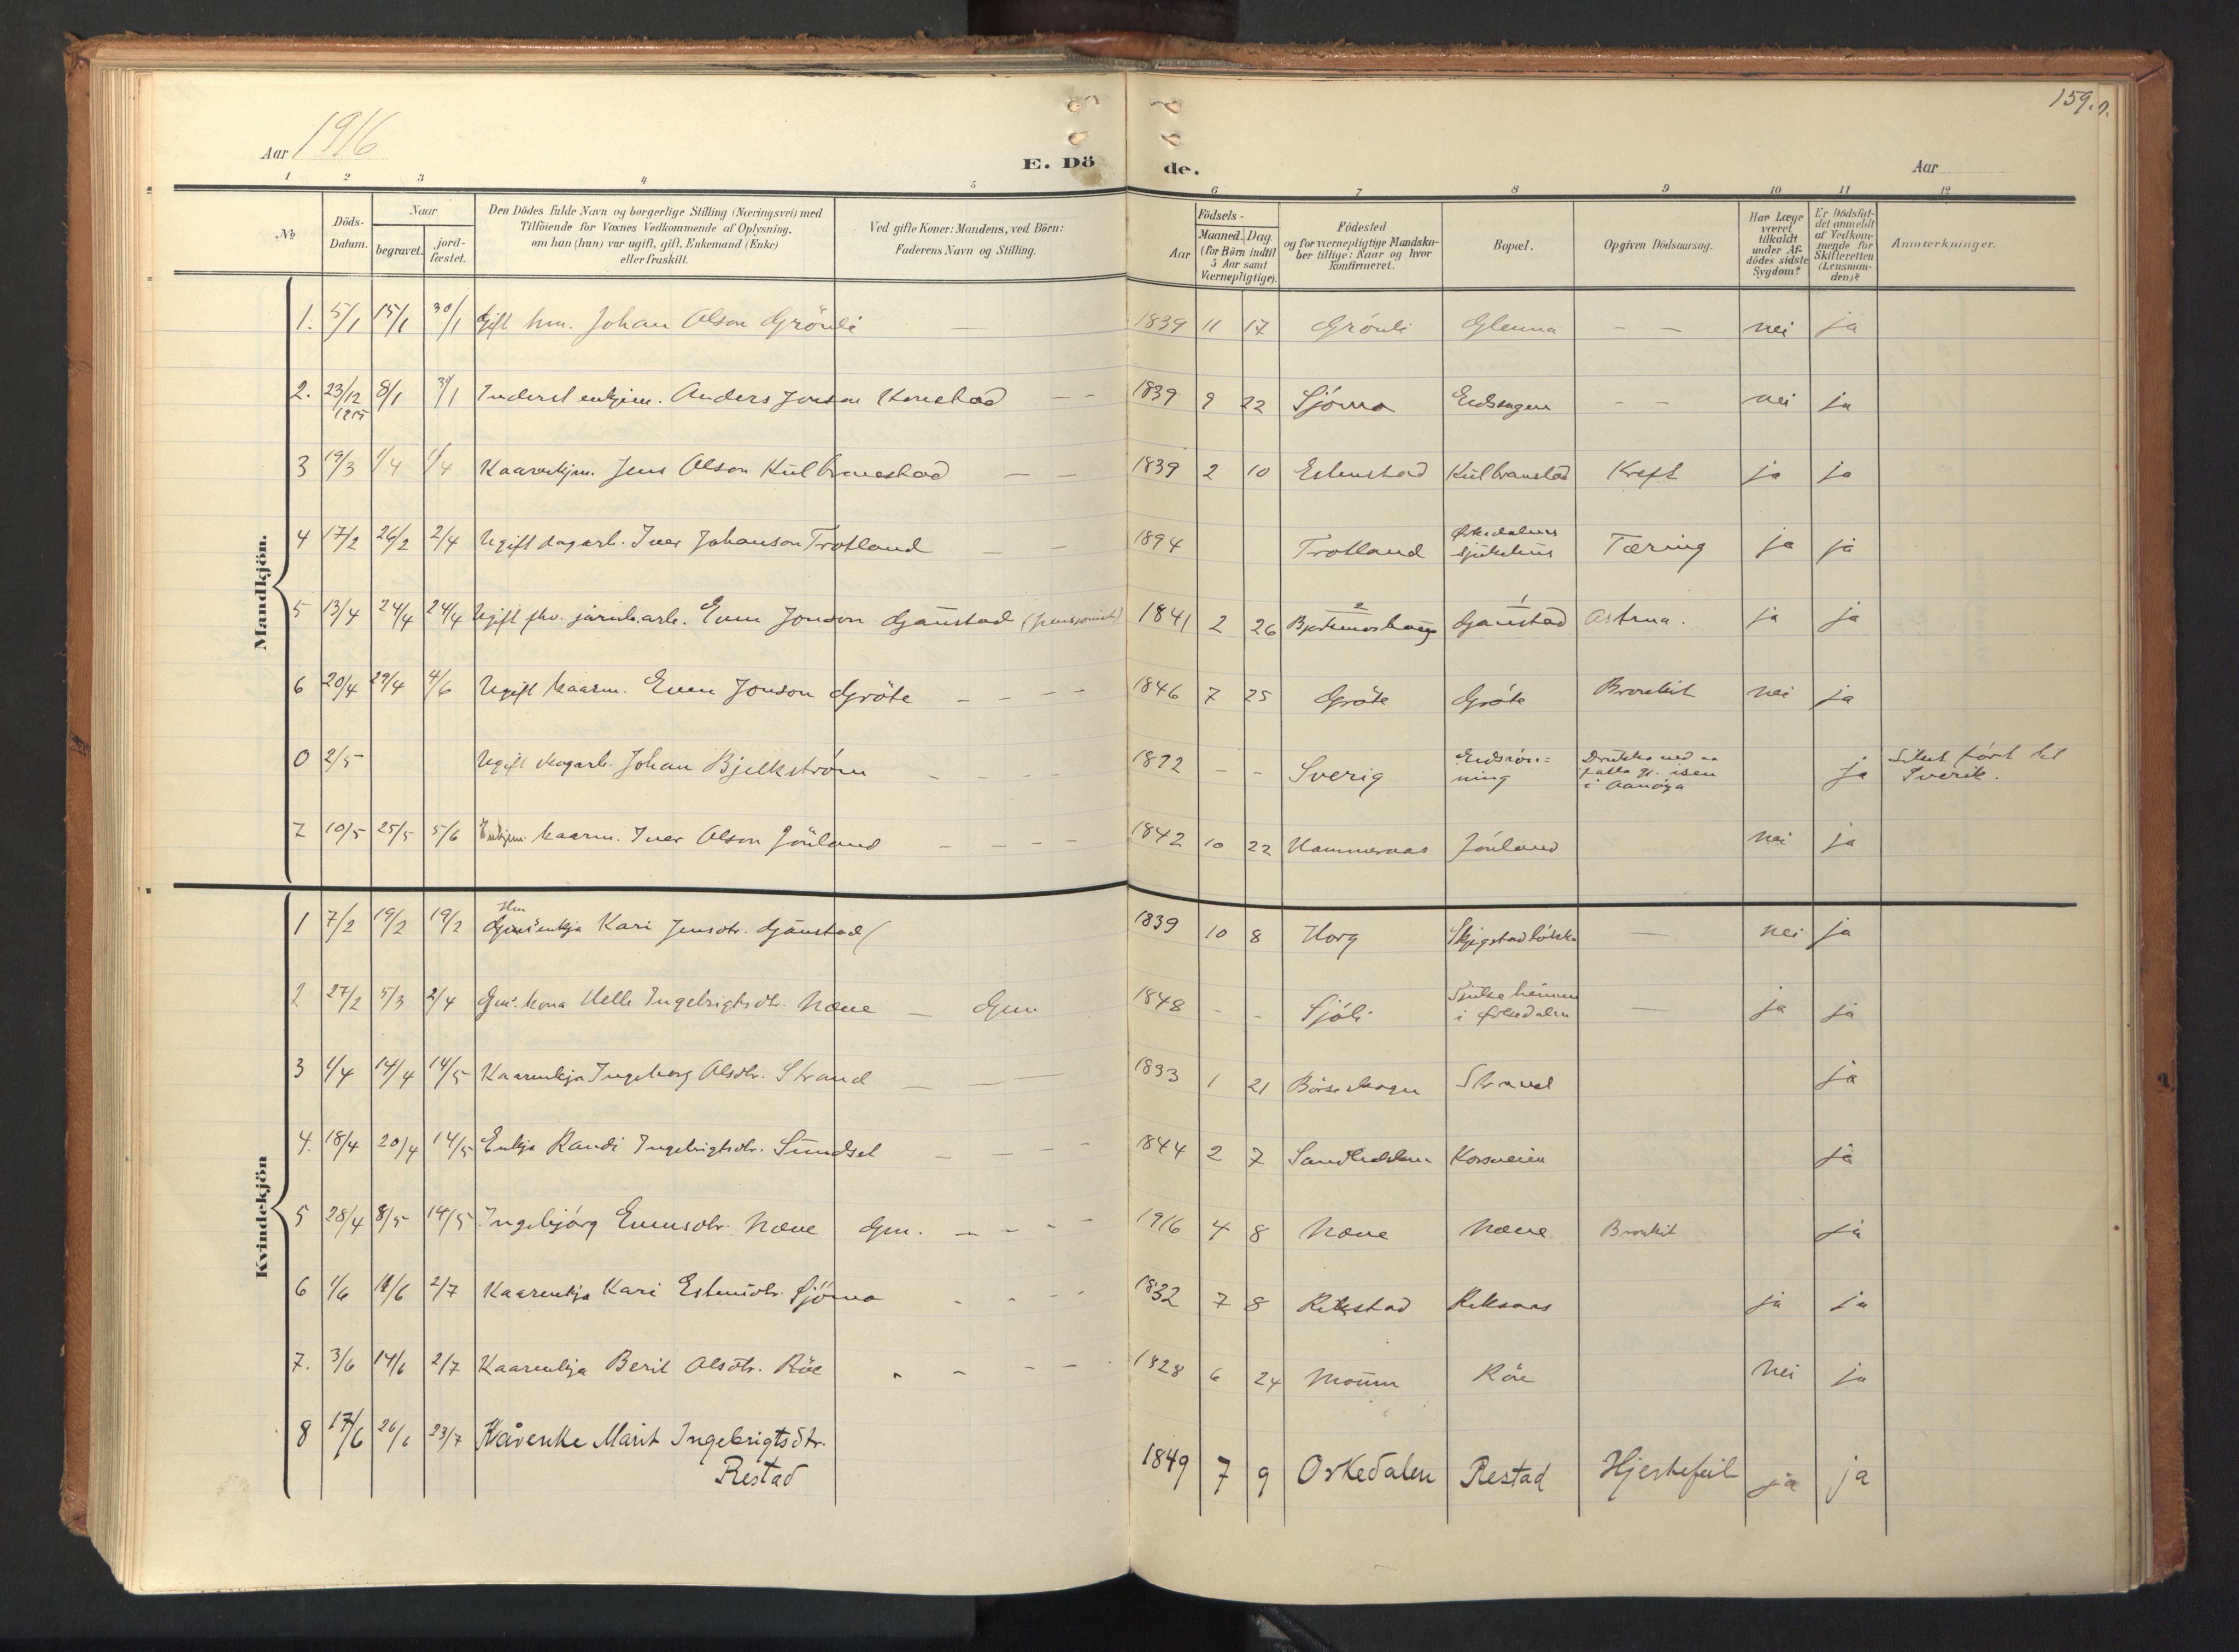 159.
Aar 1916
E. Dö de.
Aar
1 2 3 4 5 6 7 8 9 10 11 12
No
Döds-Datum.
Naar
begravet.
jord-fæstet.
Den Dödes fulde Navn og borgerlige Stilling (Næringsvei) med
Tilföiende for Voxnes Vedkommende af Oplysning.
om han (hun) var ugift, gift, Enkemand (Enke)
eller fraskilt.
Ved gifte Koner: Mandens, ved Börn:
Faderens Navn og Stilling.
Födsels-
Aar
Maaned. Dag.
(for Börn indtil
5 Aar samt
Værnepligtige).
Födested
og for værnepligtige Mandska-
ber tillige: Naar og hvor
konfirmeret.
Bopæl.
Opgiven Dödsaarsag.
Har Læge
været
tilkaldt
under Af-
dödes sidste
Sygdom?
Er Dödsfal-
det anmeldt
af Vedkom-
mende for
Skifteretten
(Lensman-
den)?
Anmærkninger.
Mandkjön.
1. 5/1 15/1 30/1 Gift hm. Johan Olson Grönli — 1839 11 17 Grönli Glenna — — nei ja
2. 23/12 1915 8/1 30/1 Inderst enkjem. Anders Jonson — — 1839 9 22 Sjömo — — nei ja
3 19/3 1/4 1/4 Kaarenkjm. Jens Olson Kulbranestad — — 1839 2 10 Estenstad Kulbranstad Kreft ja ja
4 17/2 26/2 2/4 Ugift dagarb. Iver Johanson Trotland — — 1894 Trotland Orkedalens
sjukehus Tæring ja ja
5 13/4 24/4 24/4 Ugift fhv. járnb.arb. Even Jonson Gaustad (pensjonist) 1841 2 26 Gaustad Astma. ja ja
6 20/4 29/4 4/6 Ugift kaarm. Even Jonson Gröte — — — 1846 7 25 Gröte Gröte Bronkit nei ja
0 2/5 Ugift skogarb. Johan Bjelkström — — — 1872 — — Sverig Eidsrón=
ning i Aanöya ja Liket fört til
Sverik.
7 10/5 25/5 5/6 Enkjem. kaarm. Iver Olson Jönland — — — — 1842 10 22 Hammernas Jönland nei ja
Kvindekjön
1 7/2 19/2 19/2 Hm enkja Kari Jensdtr. Gaustad 1839 10 8 Horg — nei ja
2 27/2 5/3 2/4 Gm's kona Ingebrigtsdtr. Næve — Gm. 1848 - - Sjöli Sjukeheimen
i Orkedalen — ja ja
3 1/4 14/4 14/5 Kaarenkja Ingeborg Olsdtr. Strand — — — 1833 1 21 Börseskogn Strand ja
4. 18/4 20/4 14/5 Enkja Randi Ingebrigtsdtr. Sundset — — — - 1844 2 7 Korsveien ja
5 28/4 8/5 14/5 Ingebjörg Evensdtr. Næve Gm. — — - - 1916 4 8 Næve Næve Bronkit ja
6 1/6 11/6 2/7 Kaarenkja Kari Estensdtr. Sjömo - - - - 1832 7 8 Rikstad Riksaas ja ja
7. 3/6 14/6 2/7 Kaarenkja Berit Olsdtr. Röe - - - - 1828 6 24 Moum Röe nei ja
8 17/6 26/6 23/7 Kårenke Marit Ingebrigtsdtr.
Restad 1849 7 9 Orkedalen Restad Hjertefeil ja ja